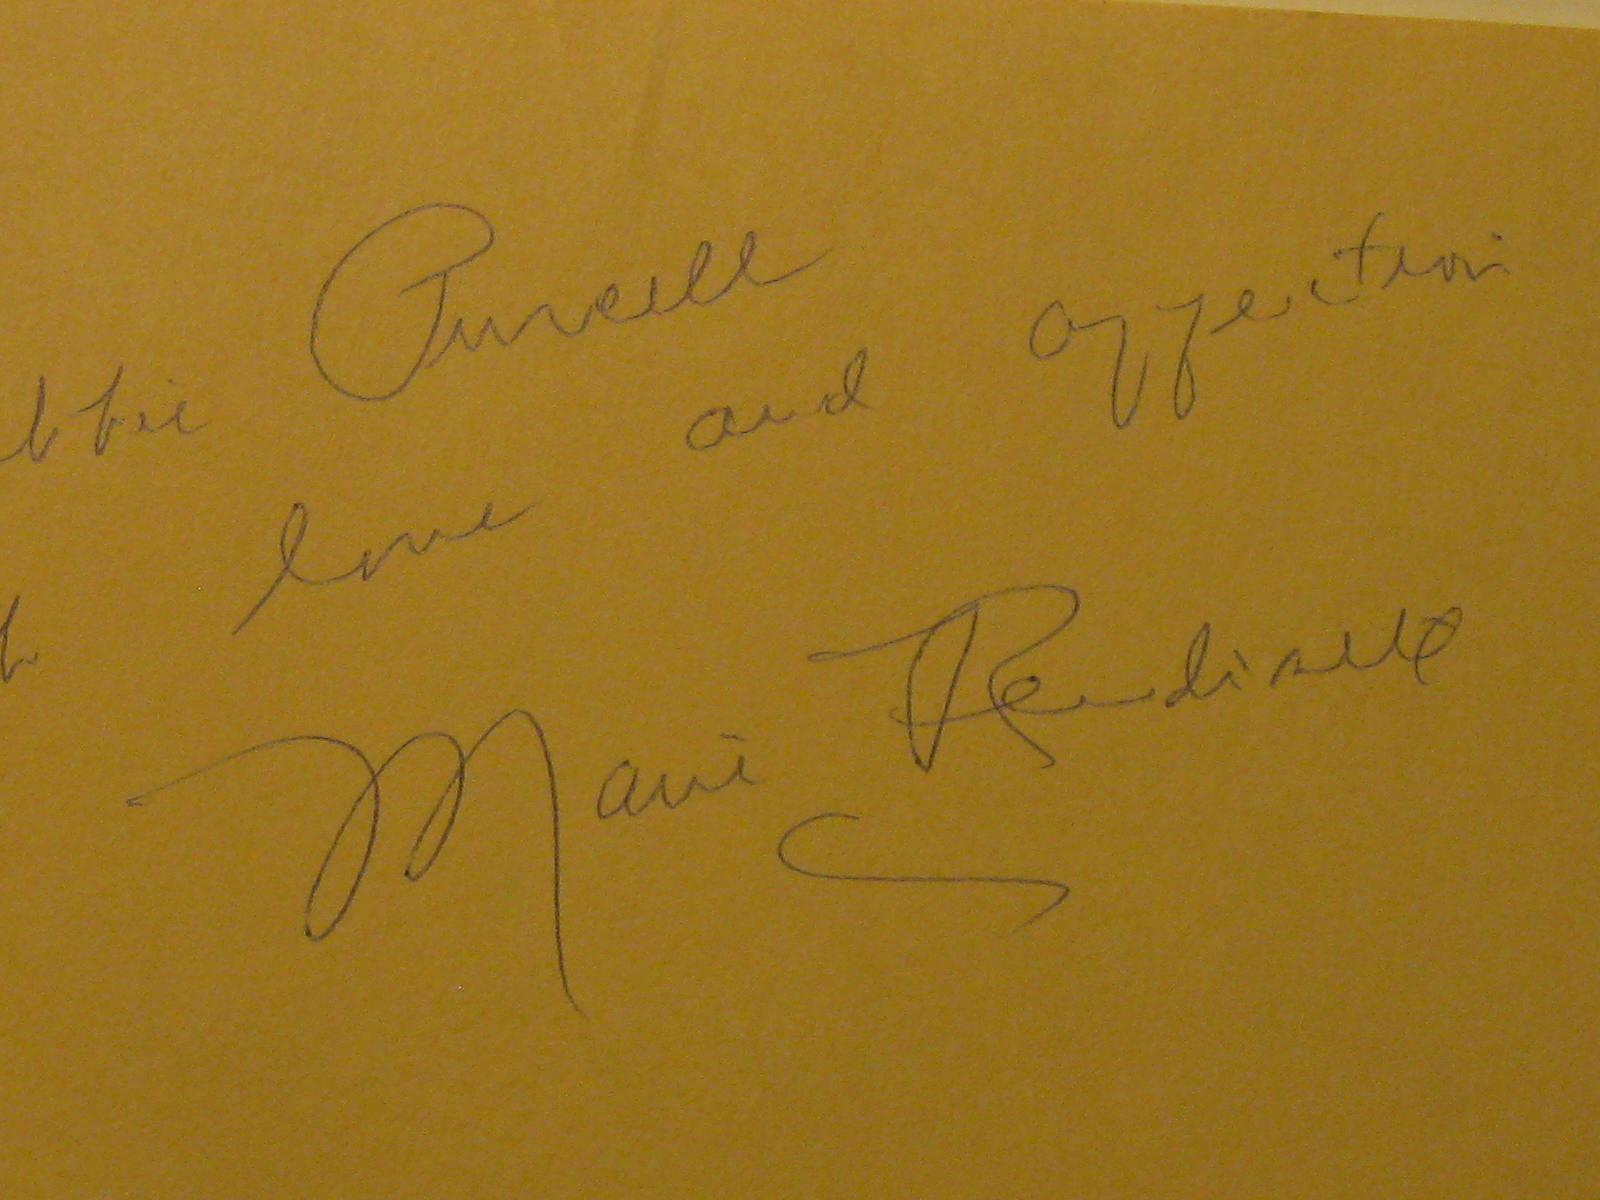 bbie Purcell
love and affection
Marie Rendisell